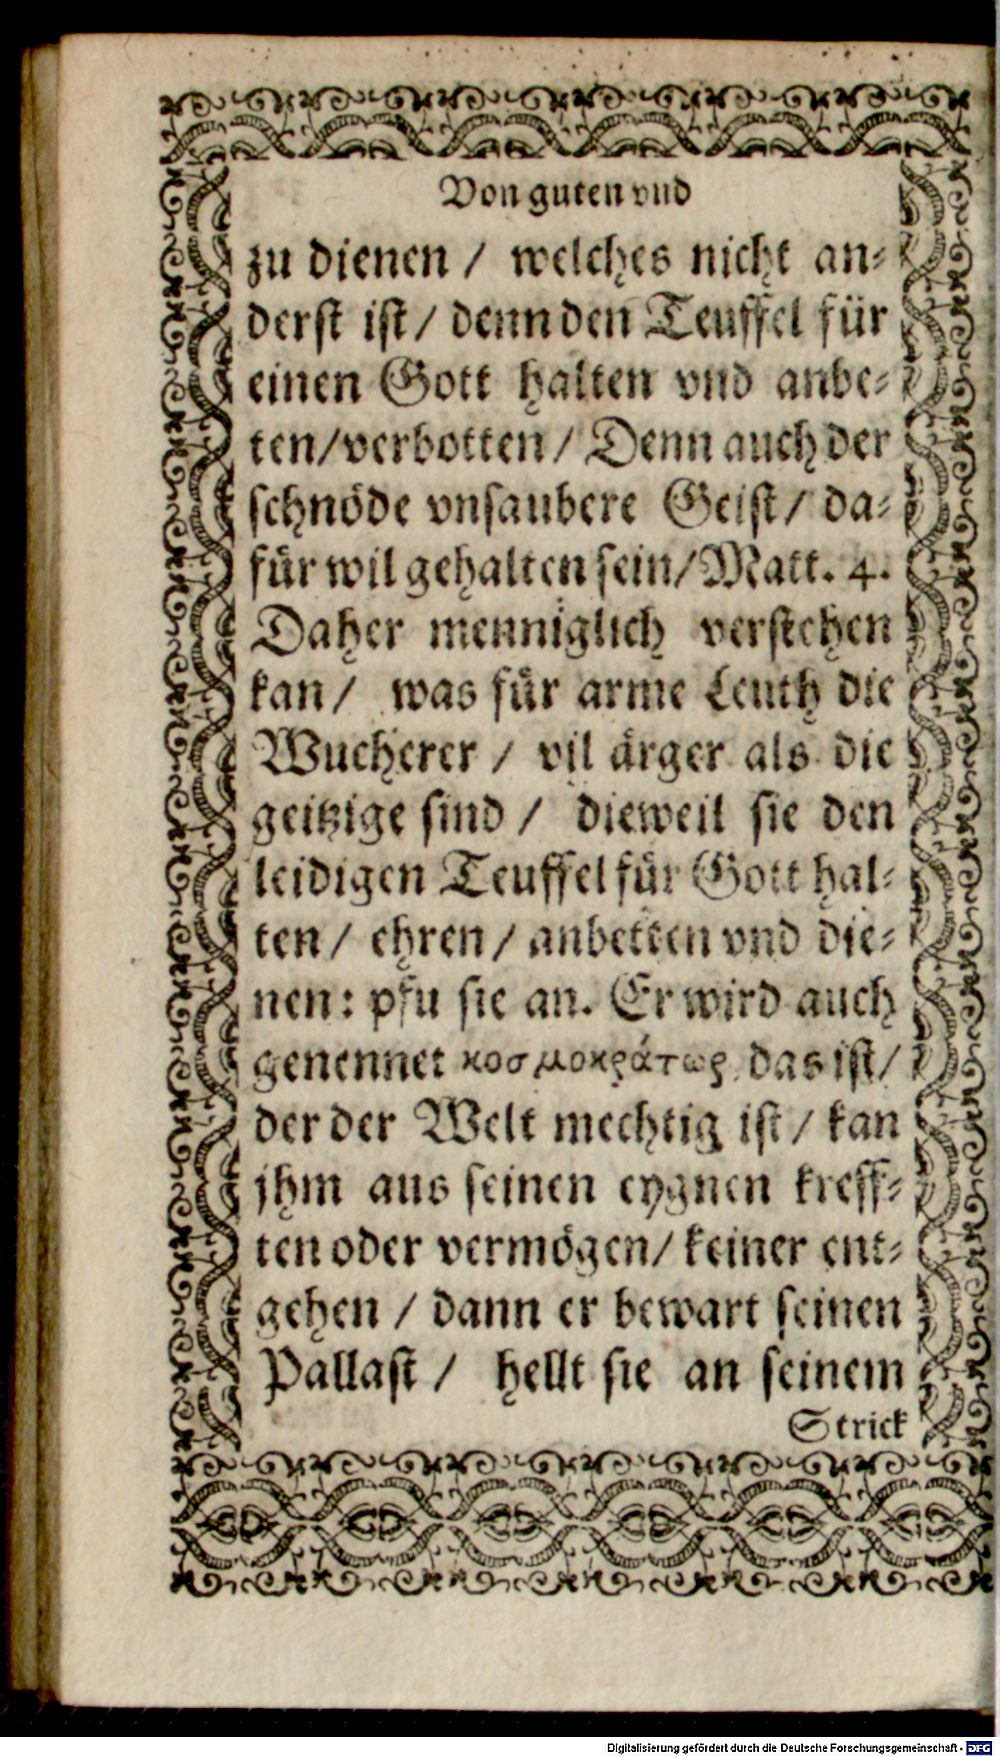 Von guten vnd
zu dienen / welches nicht an-
derst ist / denn den Teuffel für
einen Gott halten vnd anbe-
ten/verbotten / Denn auch der
schnöde vnsaubere Geist / da-
für wil gehalten sein/Matt. 4.
Daher menniglich verstehen
kan / was für arme Leuth die
Wucherer / vil ärger als die
geitzige sind / dieweil sie den
leidigen Teuffel für Gott hal-
ten / ehren / anbetten vnd die-
nen: pfu sie an. Er wird auch
genennet κοσμοκράτωρ das ist/
der der Welt mechtig ist / kan
jhm aus seinen eygnen kreff-
ten oder vermögen/ keiner ent-
gehen / dann er bewart seinen
Pallast / hellt sie an seinem
Strick
Digitalisierung gefördert durch die Deutsche Forschungsgemeinschaft - DFG